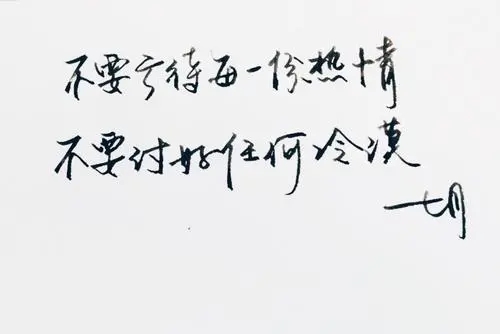 不要亏待每一份热情
不要讨好任何冷漠
一七月